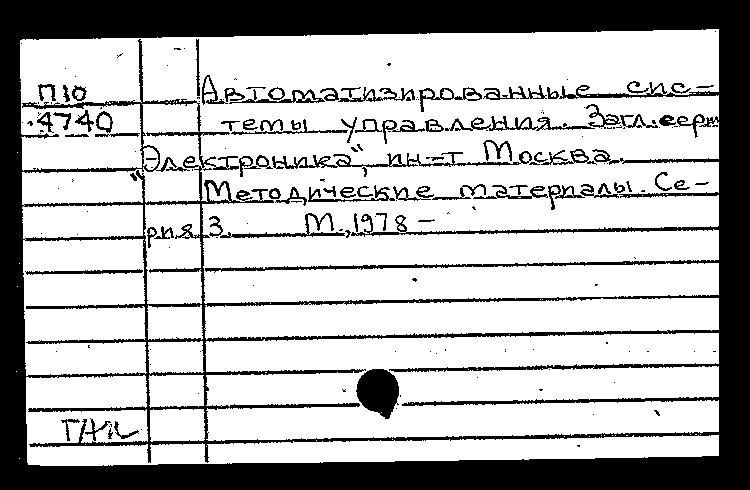 П10 Автоматизированные сис-
4740 темы управления. Загл. сери
"Электроника", ин-т Москва.
Методические материалы. Се-
рия 3. М., 1978 –